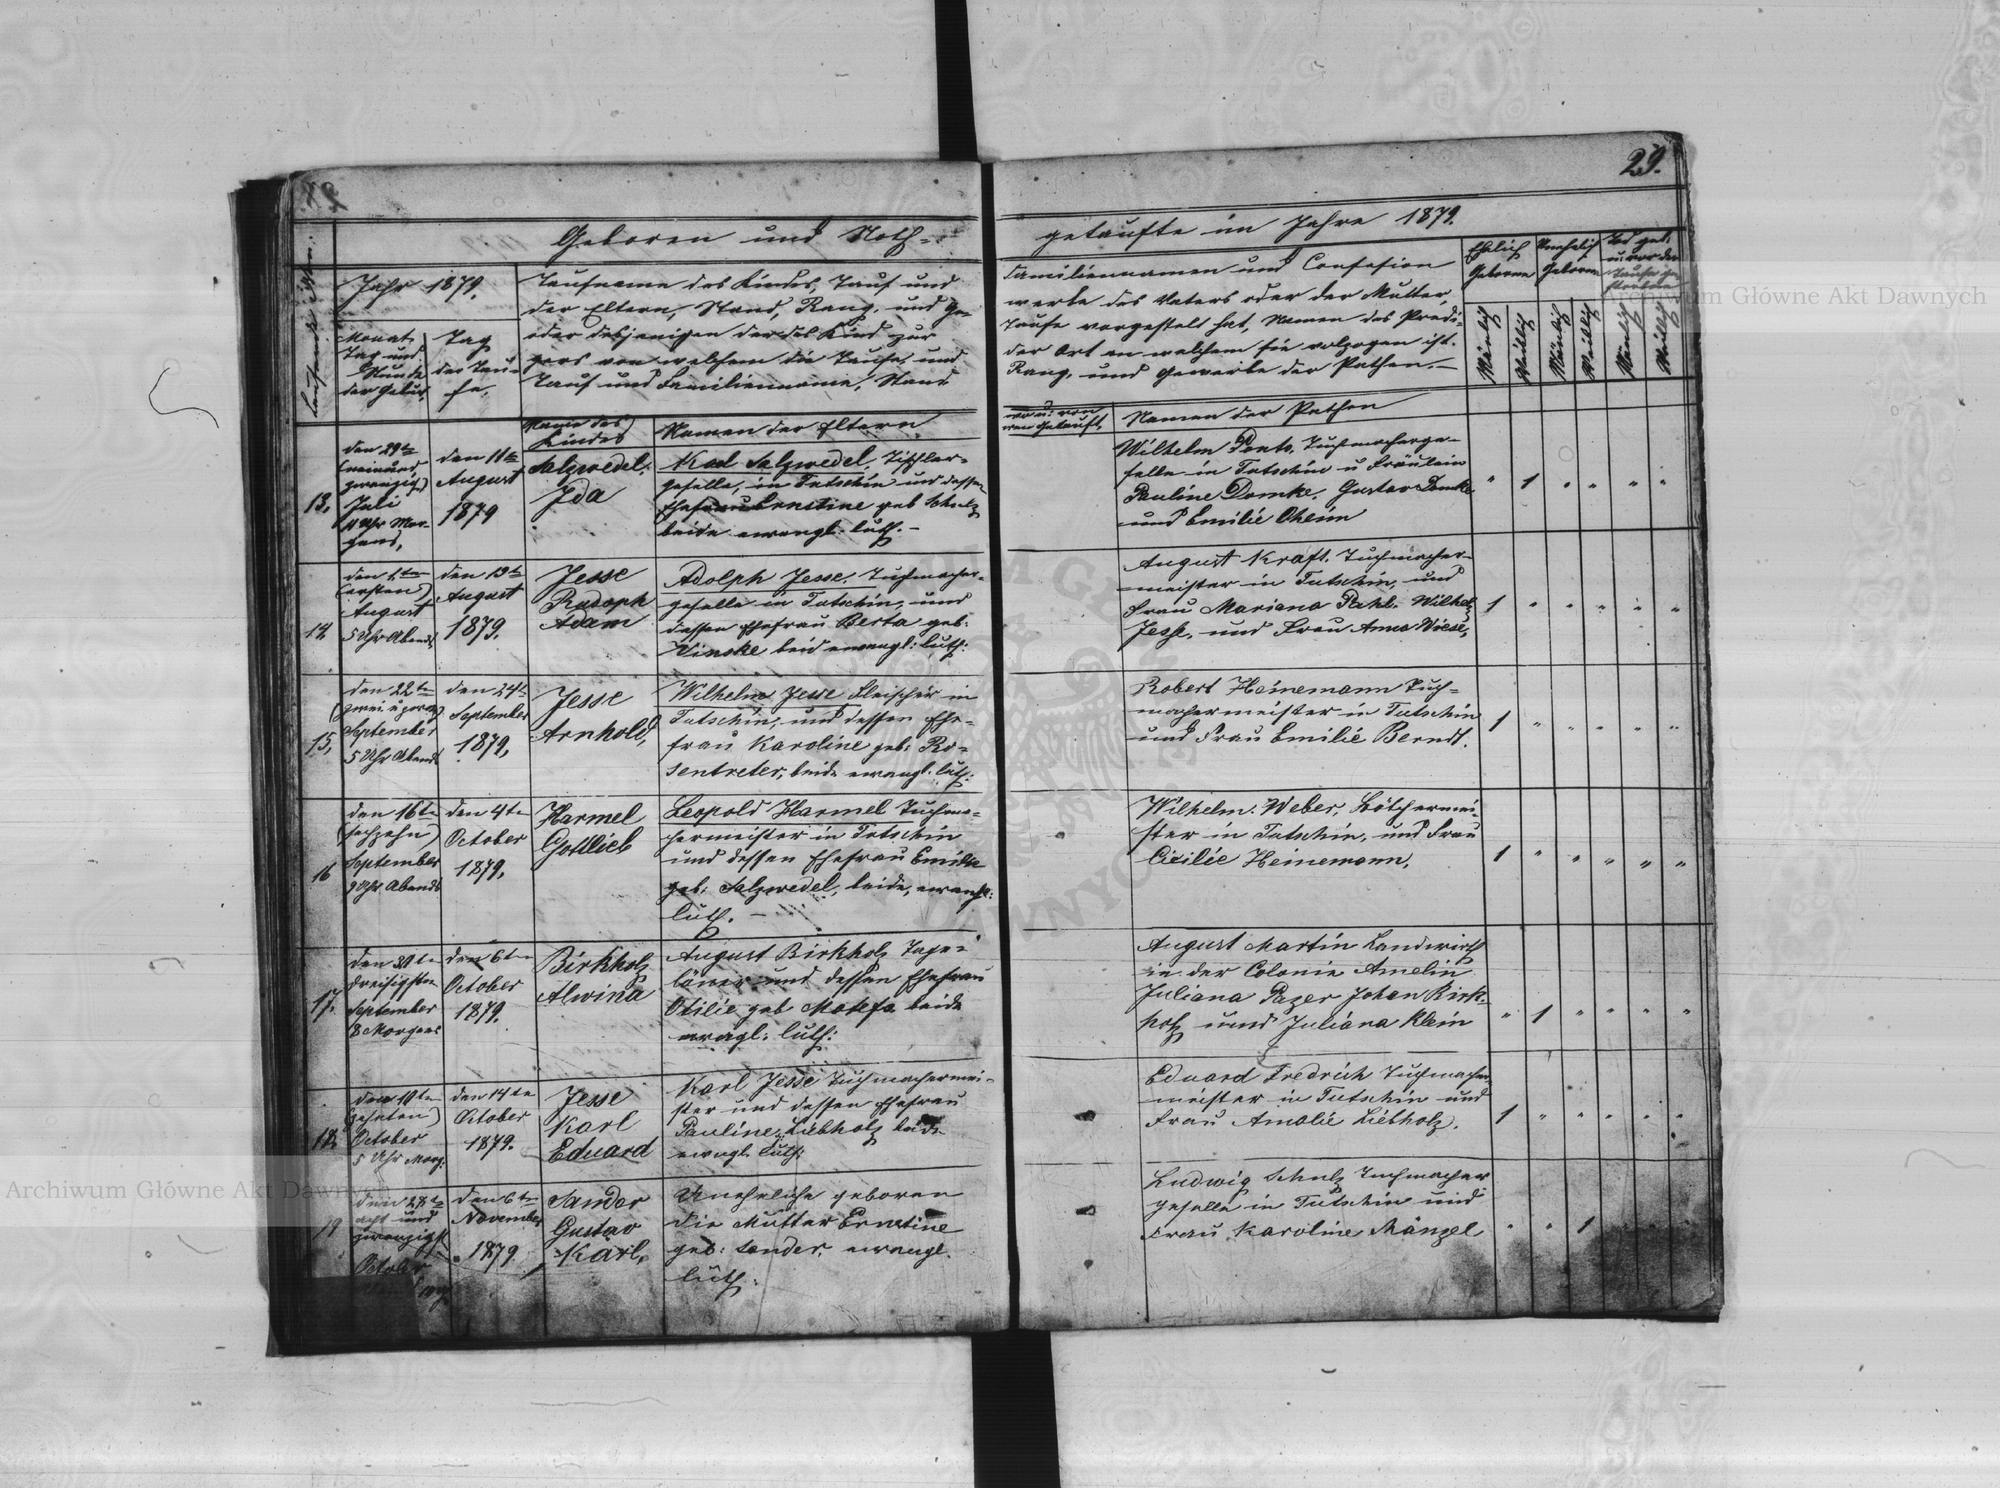 29.
Geboren und Noth-
getaufte im Jahre 1879.
Laufende Num:
Jahr 1879.
Monat,
Tag und
Stunde
der Geburt
Tag
der Tau-
fe.
Taufname des Kindes, Tauf und
der Eltern, Stand, Rang, und Ge-
oder desjenigen der das Kind zur
gers von welchem die Taufe, und
Tauf und Familienname, Stand
Familiennamen und Confesion
werbe des Vaters oder der Mutter,
Taufe vorgestelt hat, Namen des Predi-
der Ort an welchem sie volzogen ist.
Rang, und Gewerbe der Pathen.—
Ehelich
Geborene
Unehelich
Geborene
Tod geb:
u: vor der
Taufe ge
storbene
Mänlich
Weiblich
Mänlich
Weiblich
Mänlich
Weiblich
Name des
Kindes
Namen der Eltern
wo u: von
wem getauft,
Namen der Pathen
13,
den 29te
(neinund
zwanzigst)
Juli
Uhr Mor-
gens,
den 11te
August
1879
Salzwedel,
Ida
Karl Salzwedel, Tischler-
geselle, in Tutschin und dessen
Ehefrau Ernstine geb Schulz
beide ewangl: luth. -
Wilhelm Ponts, Tuchmacherge-
selle in Tutschin u Fräulein
Pauline Domke, Gustav Domke
und Emilie Oheim
" 1 " " " "
14
den 1ten
(ersten)
August
5 Uhr Abends
den 19te
August
1879.
Jesse
Rudoph
Adam
Adolph Jesse, Tuchmacher-
geselle in Tutschin, und
dessen Ehefrau Berta geb:
Zinske beid ewangl: luth:
August Kraft, Tuchmacher-
meister in Tutschin, und
Frau Mariana Pahl. Wilhel
Jesse, und Frau Anna Wiese,
1 " " " " "
15,
den 22te
(zwei u zwanz)
September
5 Uhr Abends
den 24te
September
1879,
Jesse
Arnhold,
Wilhelm Jesse Fleischer in
Tutschin, und dessen Ehe-
frau Karoline geb: Ro-
sentreter, beide ewangl: luth:
Robert Heinemann Tuch-
machermeister in Tutschin
und Frau Emilie Berndt.
1 " " " " "
16
den 16te
(sechzehn)
September
9 Uhr Abends
den 4te
October
1879,
Harmel
Gottlieb
Leopold Harmel Tuchma-
chermeister in Tutschin
und dessen Ehefrau Emilie
geb: Salzwedel, beide, ewangl:
luth. —
Wilhelm Weber, Bötchermei-
ster in Tutschin, und Frau
Cizilie Heinemann,
1 " " " " "
17.
den 30te
dreisigsten
September
8 Morgens
den 6te
October
1879.
Birkholz
Alwina
August Birkholz Tage-
löner und dessen Ehefrau
Otilie geb beide
ewagl: luth:
August Martin Landwirth
in der Colonie Amelin
Juliana Pazer Johan Birk-
holz und Juliana Klein
" 1 " " " "
18,
den 10te
(zehnten)
October
5 Uhr Morg:
den 14te
October
1879.
Jesse
Karl
Eduard
Karl Jesse Tuchmachermei-
ster und dessen Ehefrau
Pauline Liebholz beide
ewagl: luth:
Eduard Fredrich Tuchmacher
meister in Tutschin und
Frau Amalie Liebholz.
1 " " " " "
19
den 28te
acht und
zwanzigst
October
den 6te
November
1879
Sander
Gustav
Karl,
Unehrliche geboren
die Mutter Ernstine
geb: Sander, ewangl.
luth:
Ludwig Schulz Tuchmacher
geselle in Tutschin und
Frau Karoline Mänzel
" " 1
Archiwum Główne Akt Dawnych
Archiwum Główne Akt Dawnych